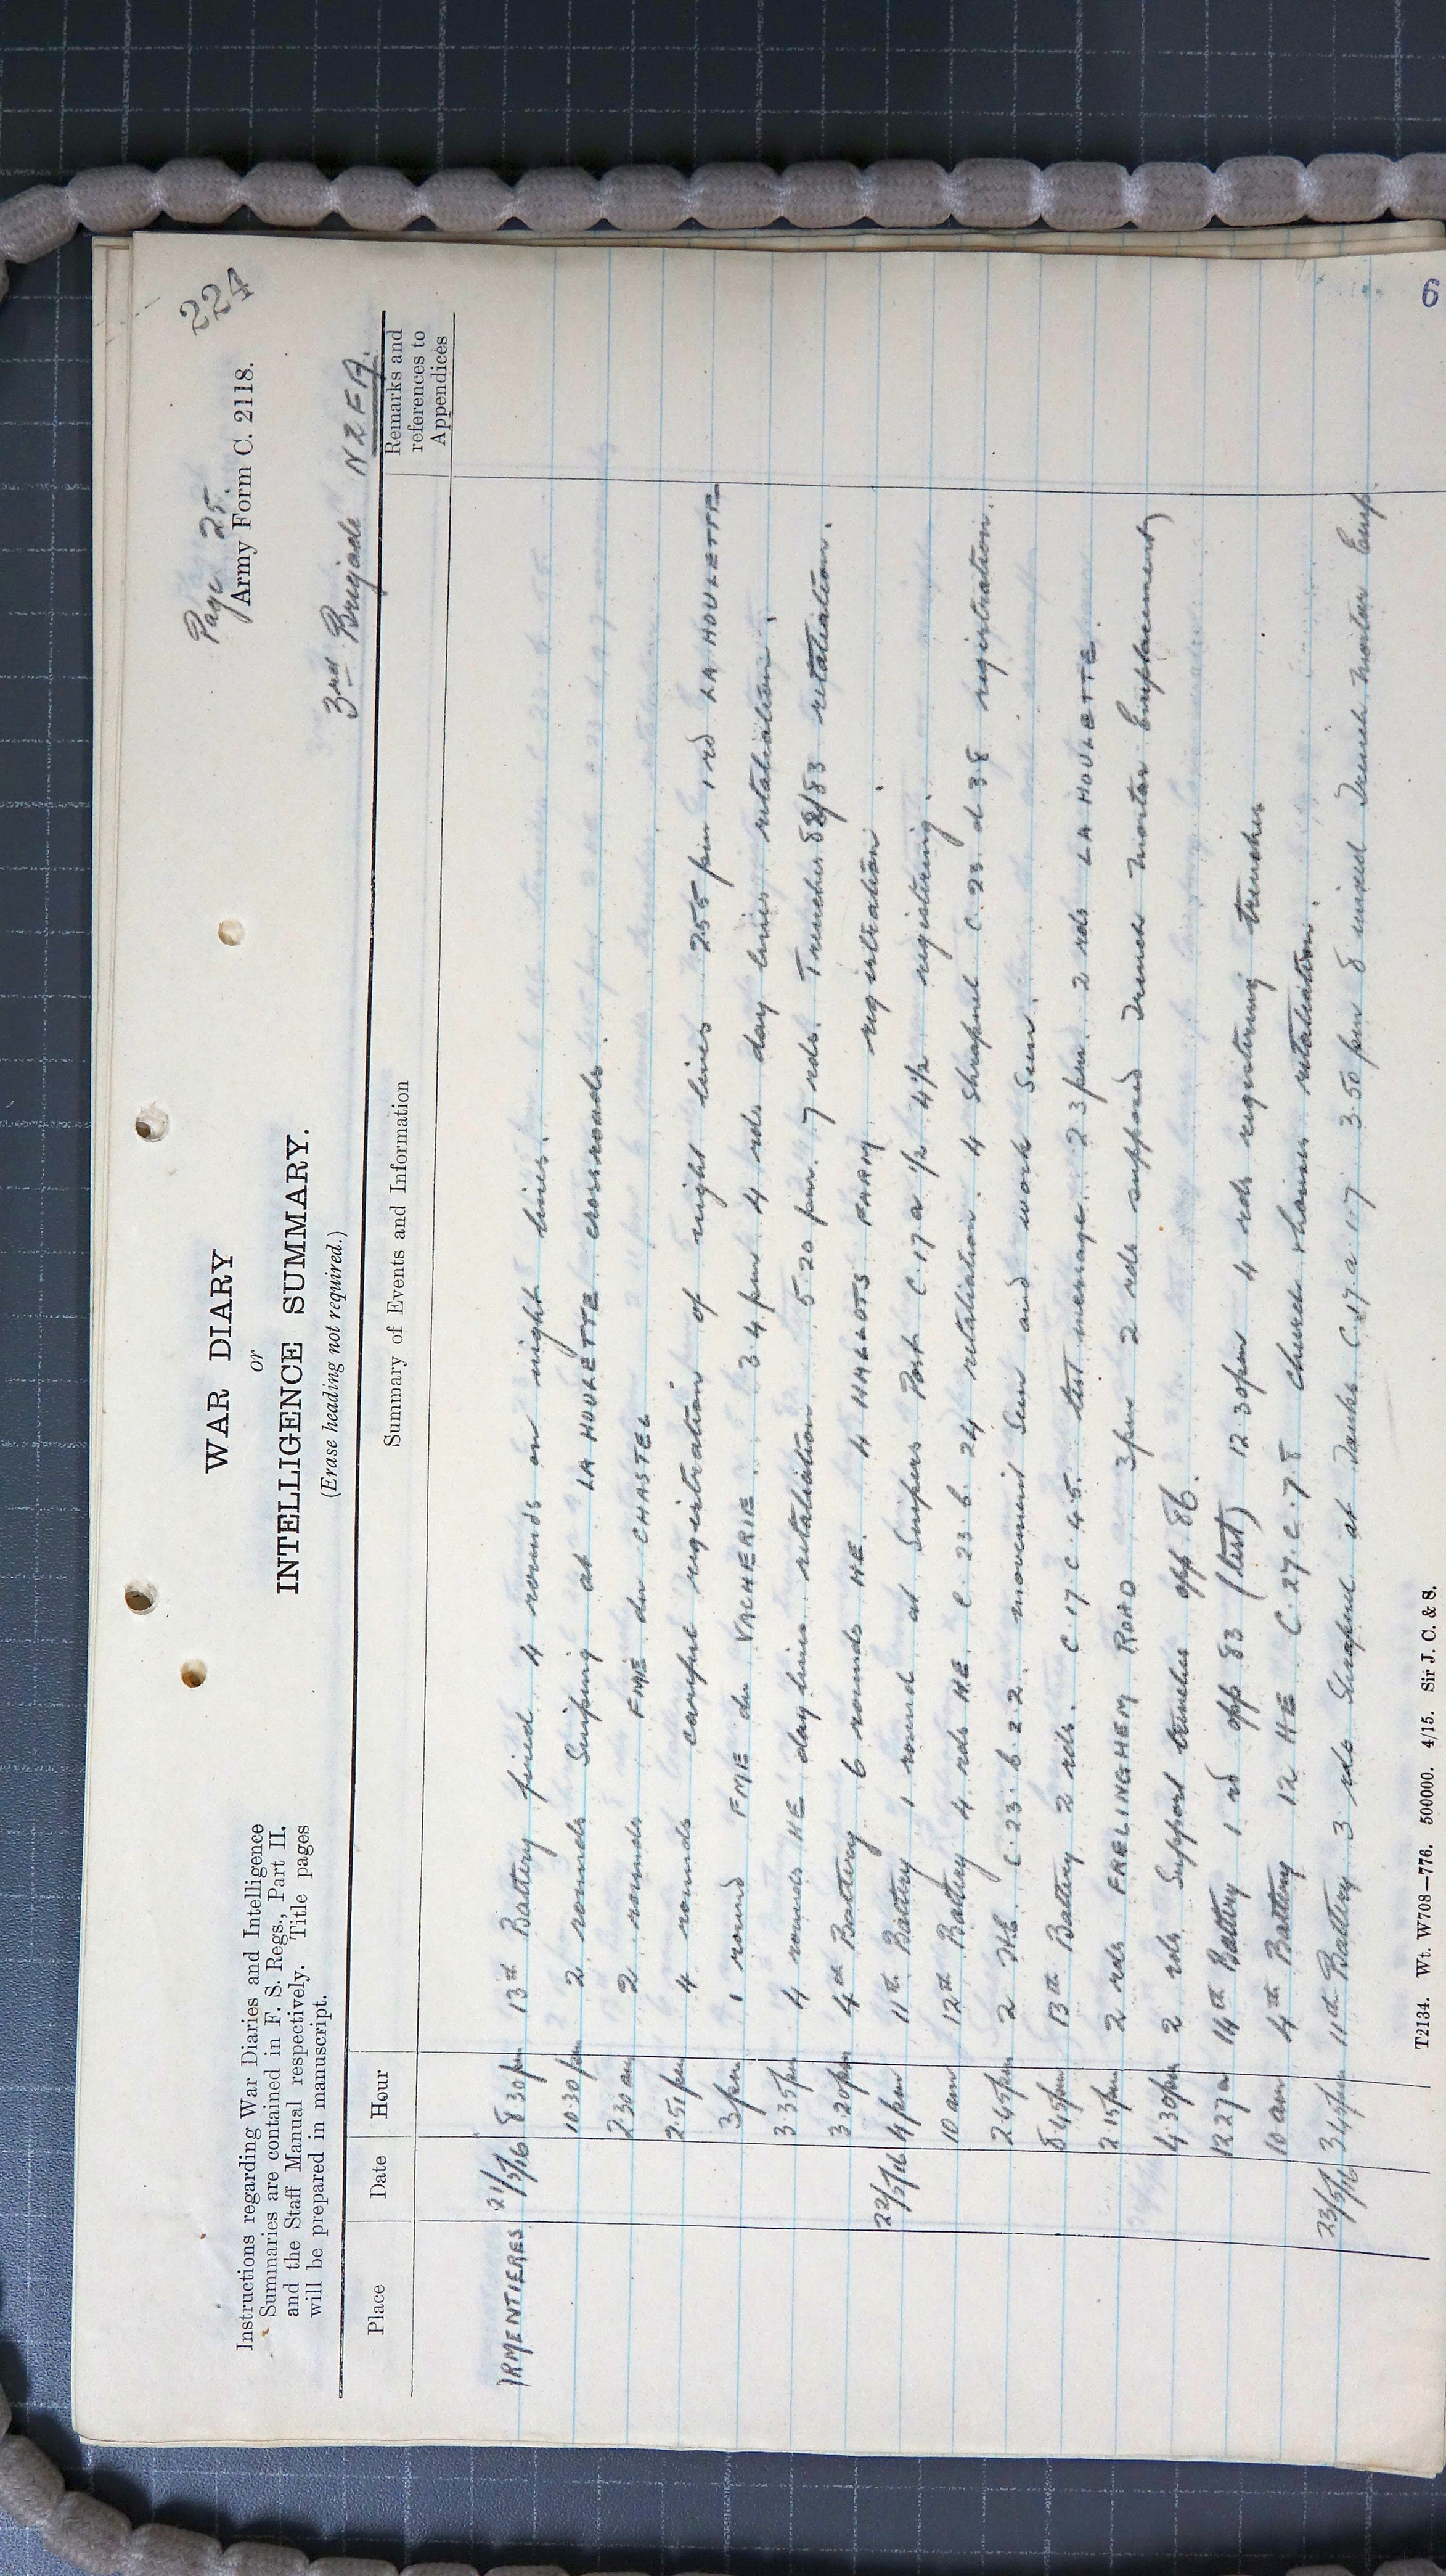 224
Page 25.
Army Form C. 2118.
3rd Brigade NZFA.
WAR DIARY
or
INTELLIGENCE SUMMARY.
(Erase heading not required.)
Instructions regarding War Diaries and Intelligence
Summaries are contained in F. S. Regs., Part II.
and the Staff Manual respectively. Title pages
will be prepared in manuscript.
Place Date Hour Summary of Events and Information Remarks and references to Appendices
ARMENTIERES 21/5/16 8.30pm 13th Battery fired 4 rounds on night lines.
10.30pm 2 rounds Sniping at LA HOULETTE crossroads.
2.30am 2 rounds FME du CHASTEL
2.51pm 4 rounds careful registration of night lines 2.55pm 1 rd LA HOULETTE
3pm 1 round FME du VACHERIE. 3.4pm 4 rds day lines retaliation.
3.35pm 4 rounds HE day lines retaliation. 5.20pm. 7 rds. Trenches 82/83 retaliation.
3.20pm 4th Battery 6 rounds HE. 4 HALLOTS FARM registration.
22/5/16 4pm 11th Battery 1 round at Snipers Post C.17a ½ 4½ registering.
10am 12th Battery 4 rds HE. C.23.b.24 retaliation. 4 Shrapnel C.23.d.38 registration.
2.45pm 2 C.23.b.22. movement Seen and work Seen.
8.45pm 13th Battery 2 rds. C.17.C.45. test message. 2.3pm. 2 rds LA HOULETTE.
2.15pm 2 rds FRELINGHEM ROAD 3pm 2 rds supposed Trench Mortar Emplacement
4.30pm 2 rds Support trenches opp. 86.
12.27a 14th Battery 1 rd opp 83 (test) 12.30pm 4 rds registering trenches
10am 4th Battery 12 HE C.27.C.78 church & houses retaliation.
23/5/16 3.45pm 11th Battery 3 rds Shrapnel at Tanks C.17.a.1.7 3.50pm 8 mixed Trench Mortar Emp.
T2134. Wt. W708—776. 500000. 4/15. Sir J. C. & S.
6